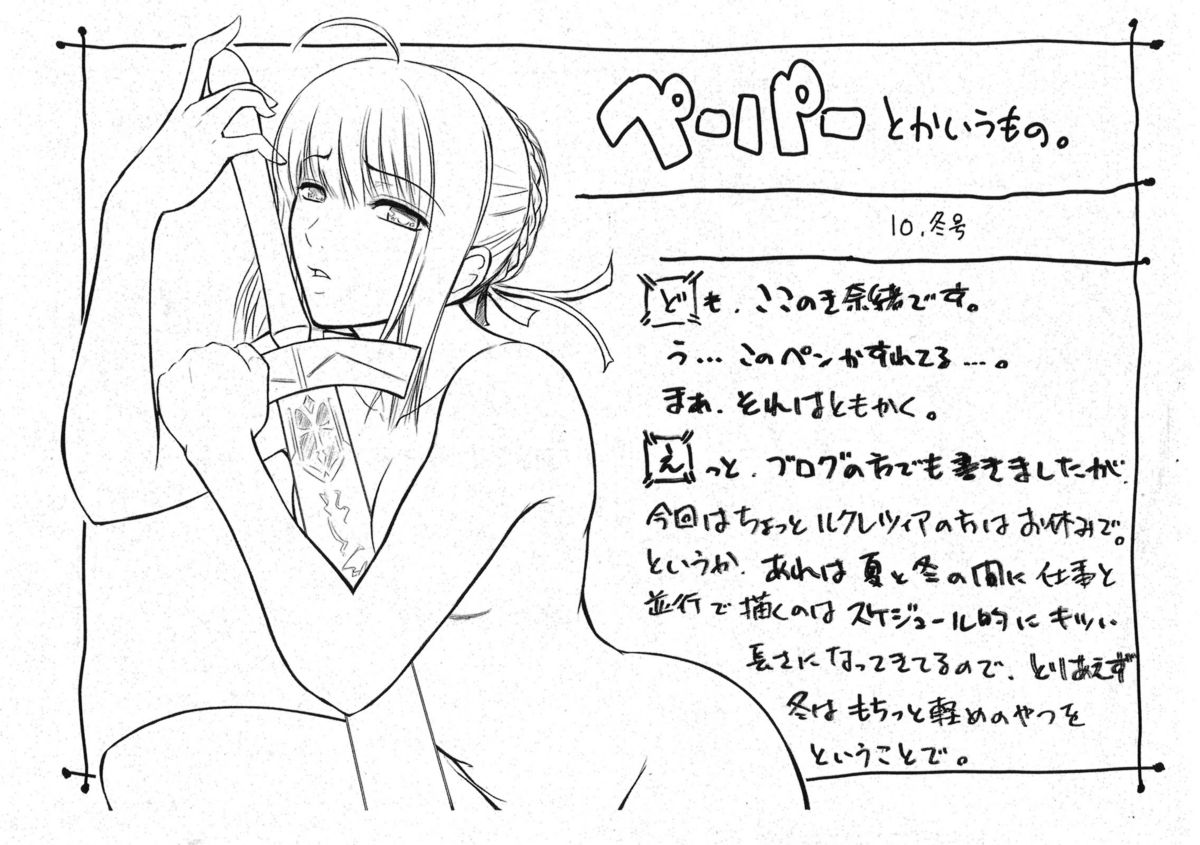 ペーパーとかいうもの。
10.冬号
ども、ここのき奈緒です。
う…このペンかすれてる…。
まぁ、それはともかく。
えっと、ブログの方でも書きましたが、
今回はちょっとルクレツィアの方はお休みで。
というか、あれは夏と冬の間に仕事と
並行で描くのはスケジュール的にキツい
長さになってきてるので、とりあえず
冬はもちっと軽めのやつを
ということで。